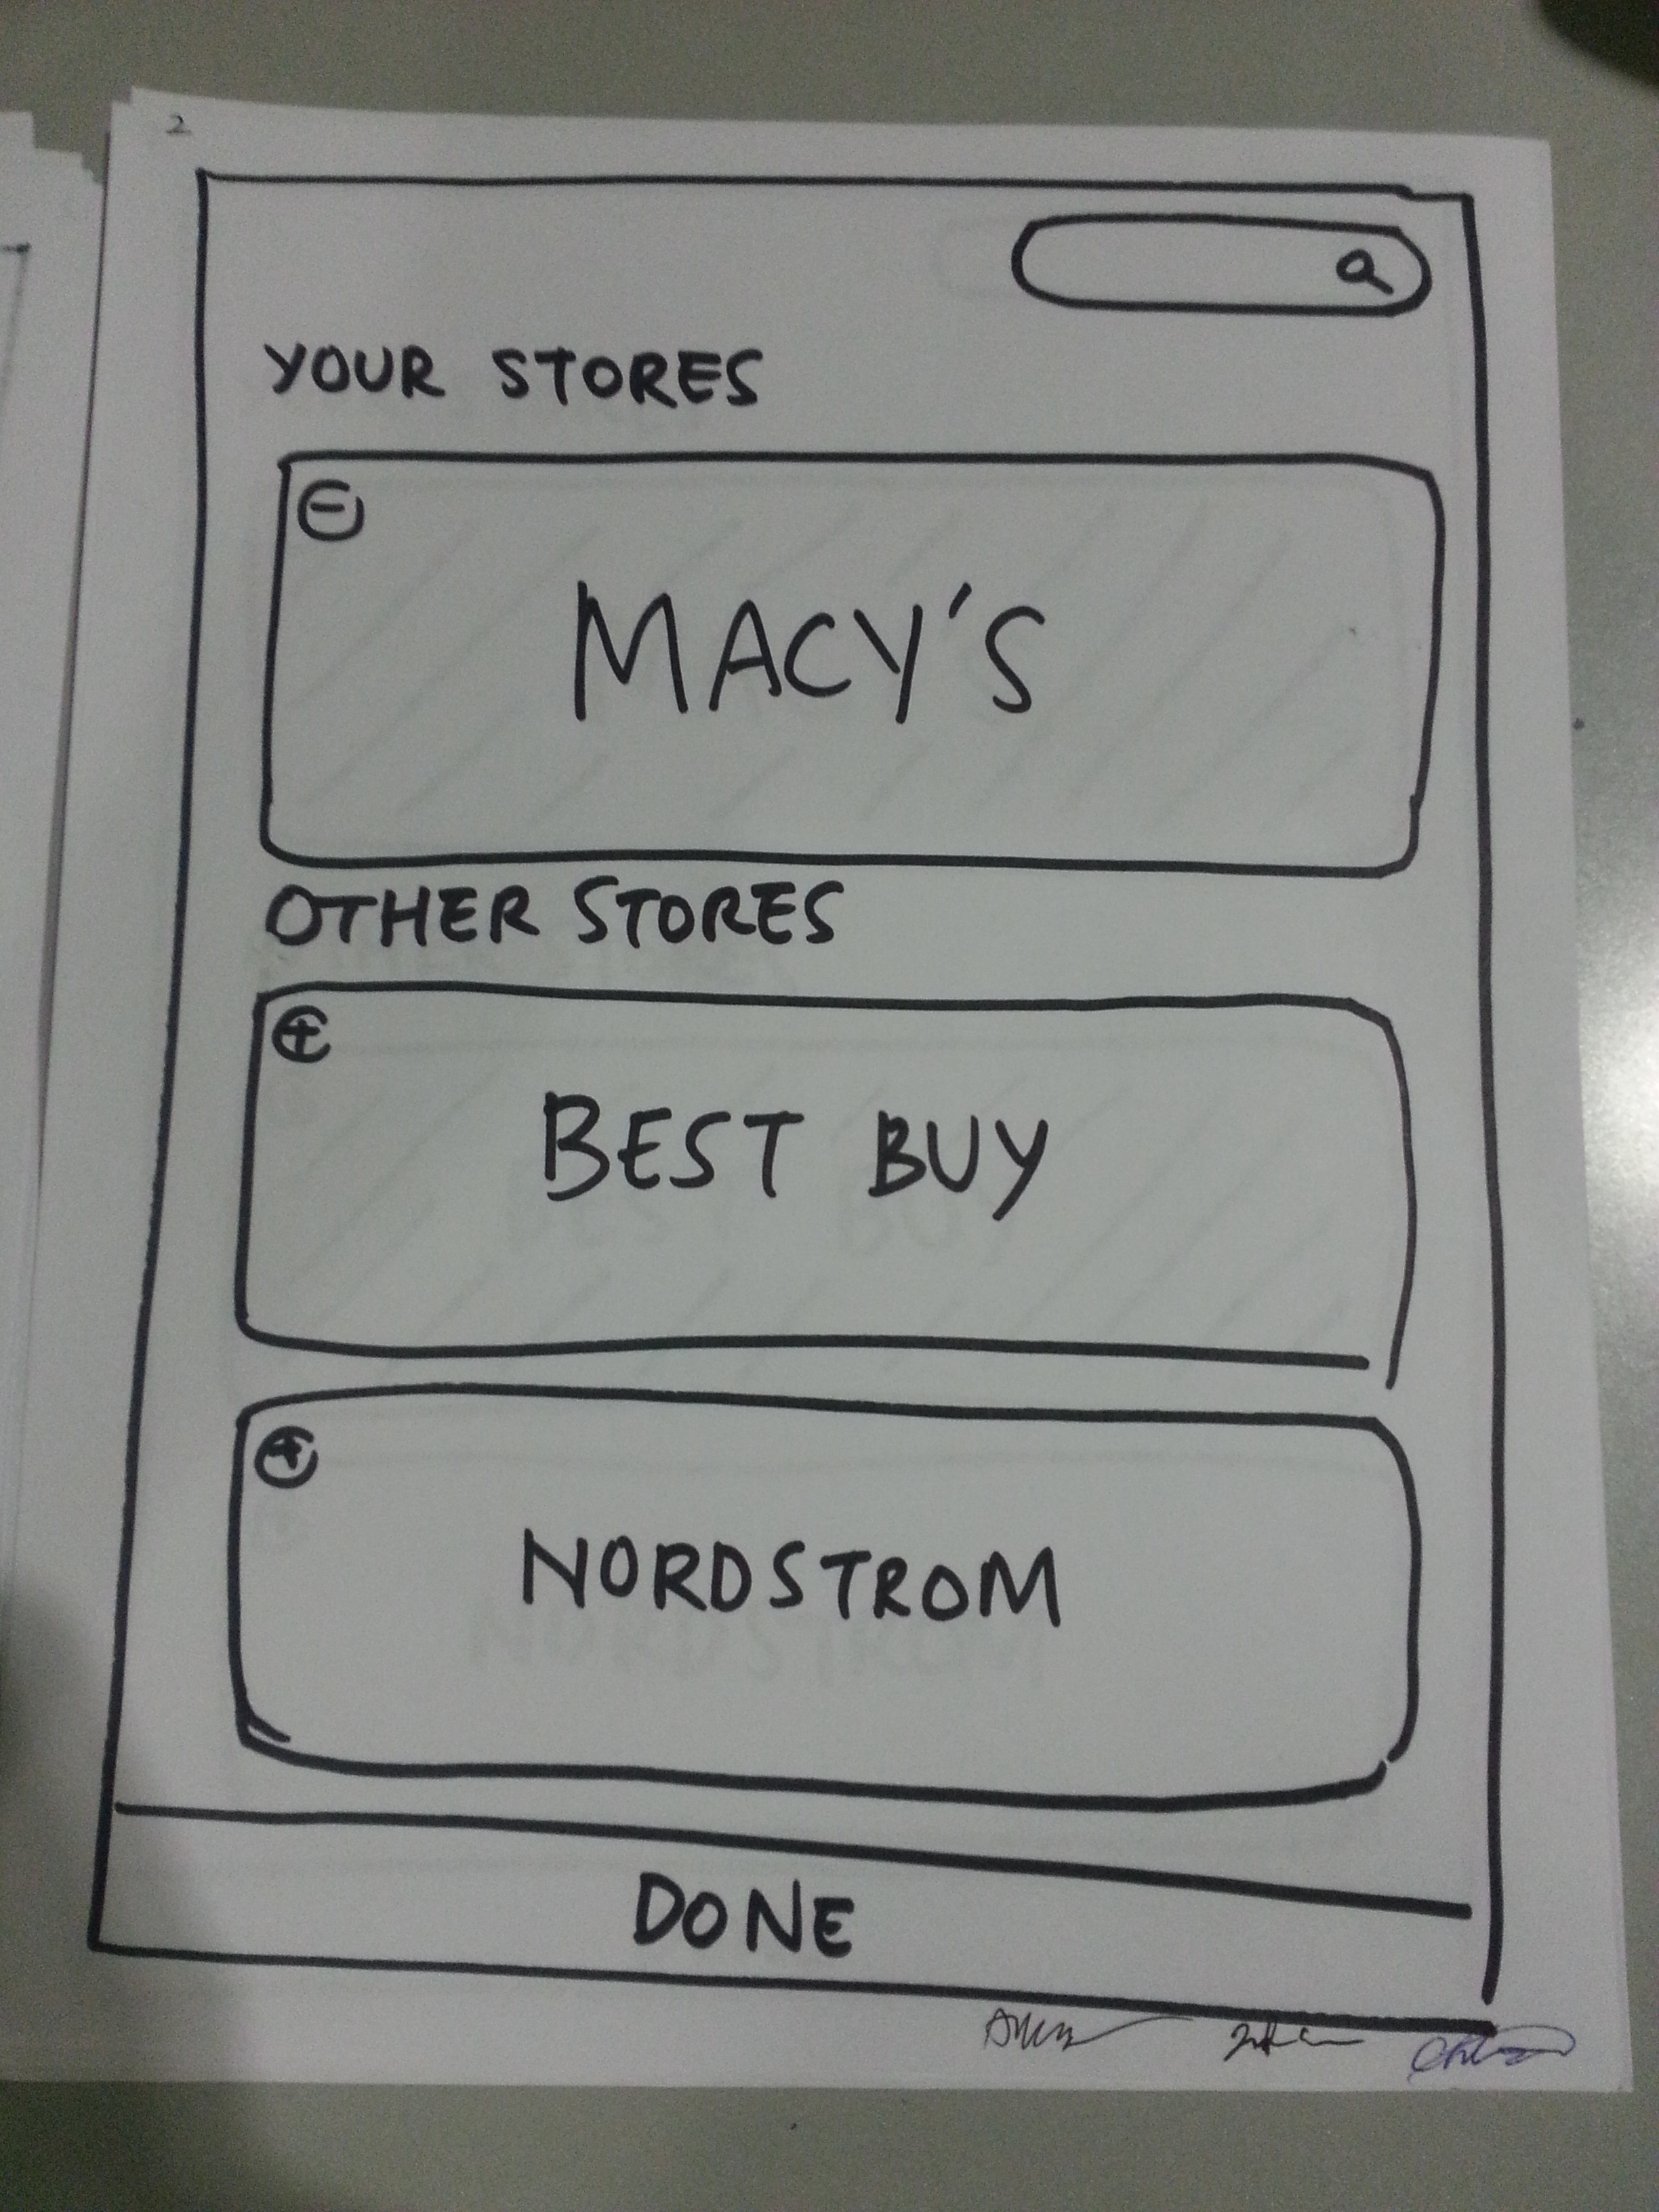 2
YOUR STORES
MACY'S
OTHER STORES
BEST BUY
NORDSTROM
DONE